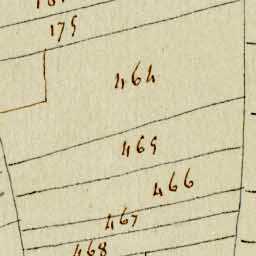 175
464
465
466
467
468